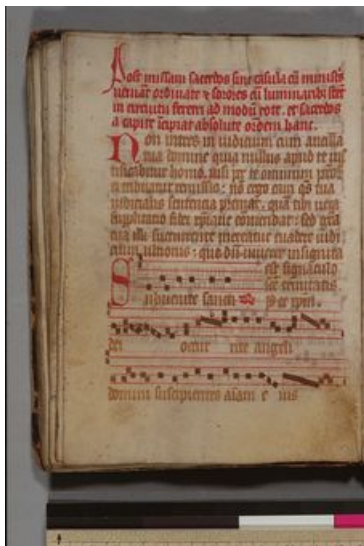 Post missam sacerdos sine casula cū minist
veniāt ordinate & sorores cū luminarib; stēt
in circuitu feretri ad modū rote. et sacerdos
a capite īcipiat absolute ordēm hanc.
Non intres in iudicium cum ancilla
tua domine quia nullus apud te ius
tificabitur homo. nisi per te omnium peccō
tribuatur remissio: nō ergo eam q̄s tua
iudicialis sententia premat. quā tibi vera
supplicatio fidei xp̄iane cōmendat: sed gra
tia tua illi succurrente mereatur euadere iudi
cium ultionis: que dū uiueret insignita
est signaculo
scē trinitatis.
Subuenite sancti P̄ce xpīn.
dei occur rite angeli
domini suscipientes aīam e ius